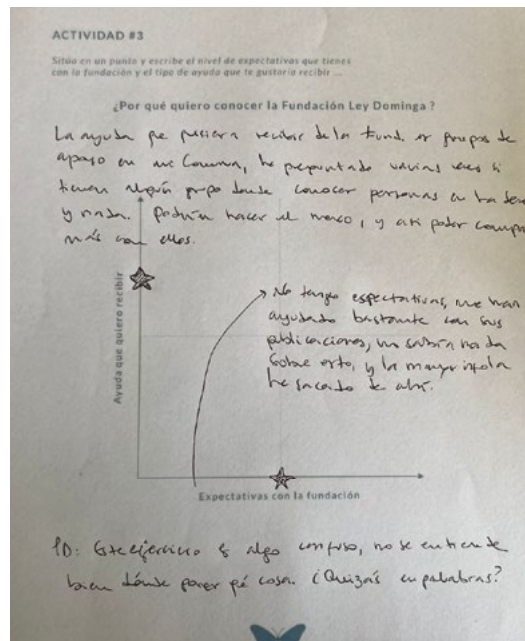 ACTIVIDAD #3
Sitúa en un punto y escribe el nivel de expectativas que tienes
con la fundación y el tipo de ayuda que te gustaría recibir ...
¿Por qué quiero conocer la Fundación Ley Dominga ?
La ayuda que quisiera recibir de la Fund. es grupos de
apoyo en mi Comuna, he preguntado varias veces si
tienen algún grupo donde conocer personas en
y nada. Podrían hacer el nexo, y así poder
más con ellos.
Ayuda que quiero recibir
No tengo expectativas, me han
ayudado bastante con sus
publicaciones, no sabía nada
sobre esto, y la mayor
he sacado de ahí.
Expectativas con la fundación
PD: Este ejercicio es algo confuso, no se entiende
bien dónde poner qué cosa. ¿Quizás en palabras?